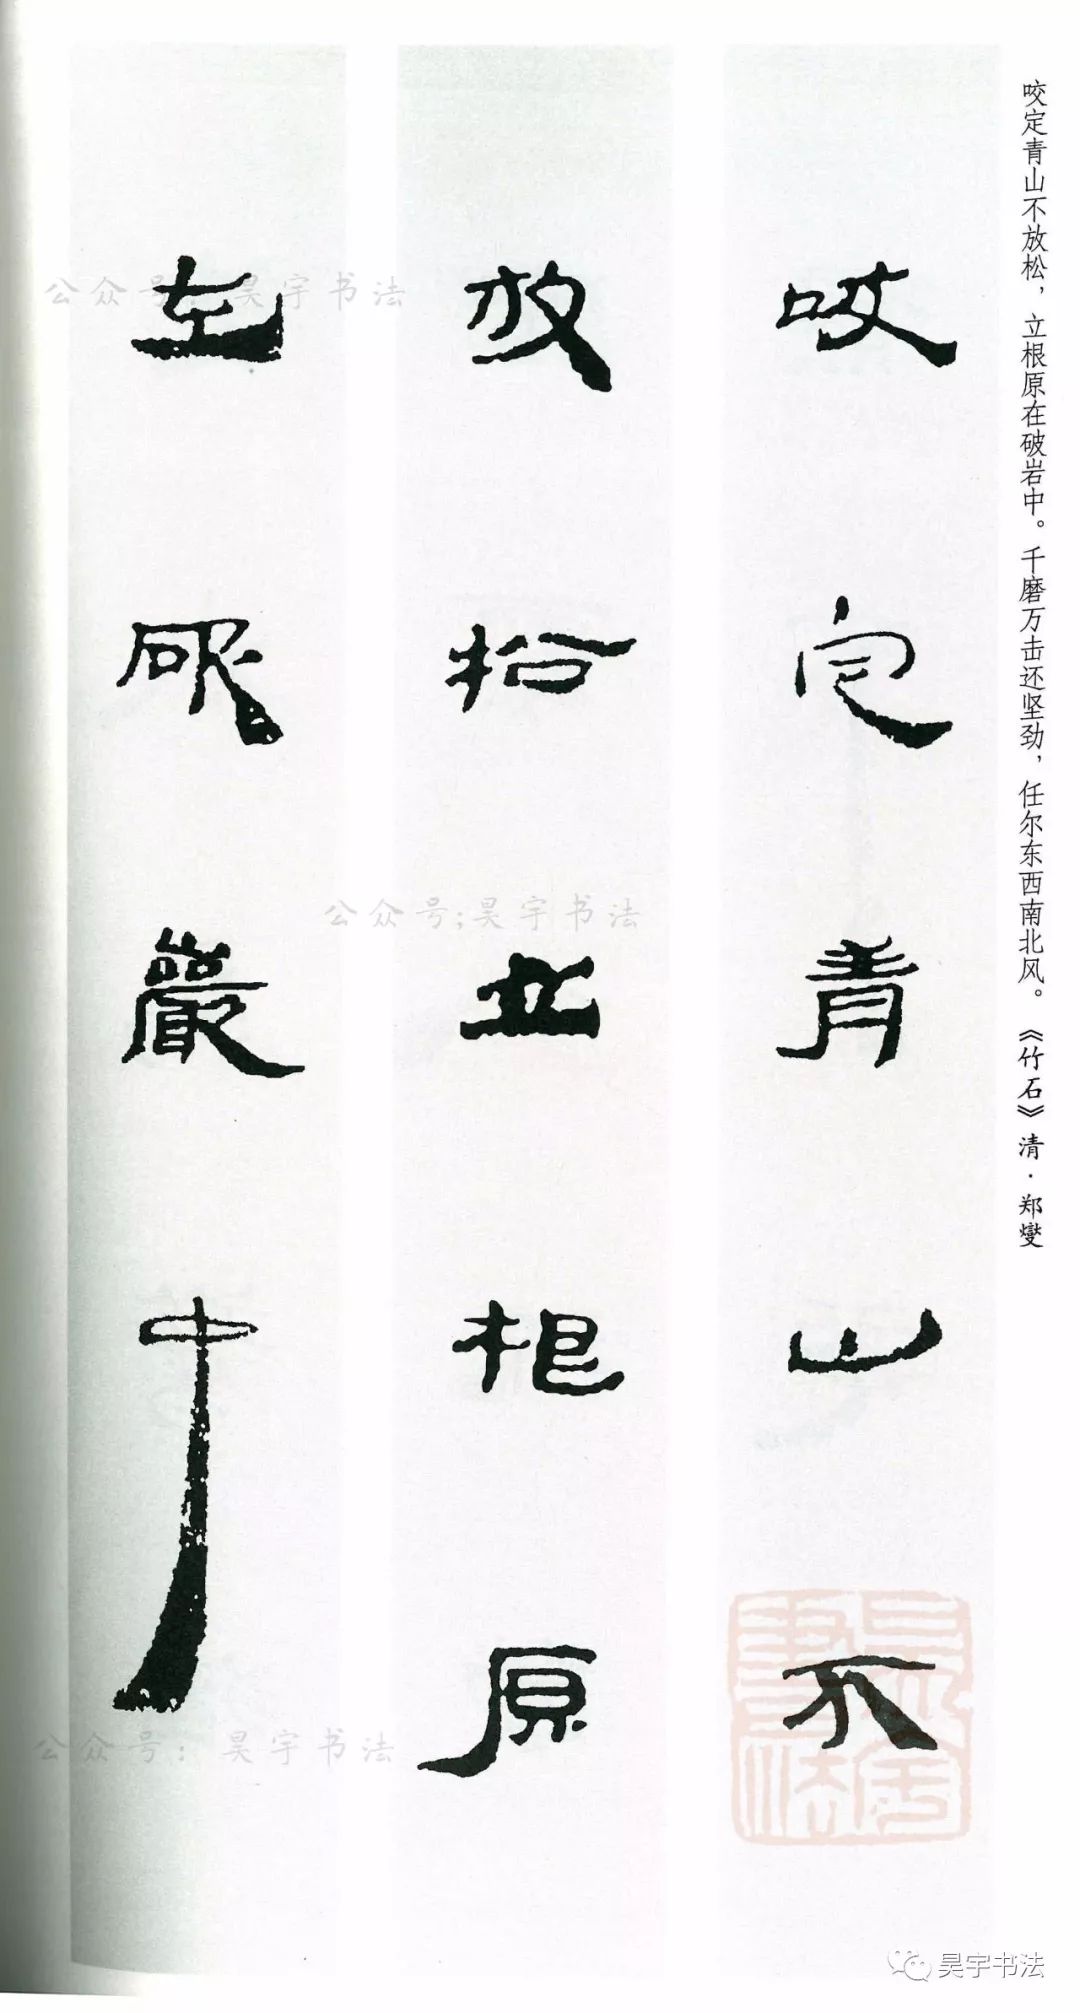 咬定青山不放松，立根原在破岩中。千磨万击还坚劲，任尔东西南北风。《竹石》清·郑燮
咬定青山不
放松立根原
在破巖中
公众号：昊宇书法
公众号;昊宇书法
公众号：昊宇书法
昊宇书法
昊宇书法